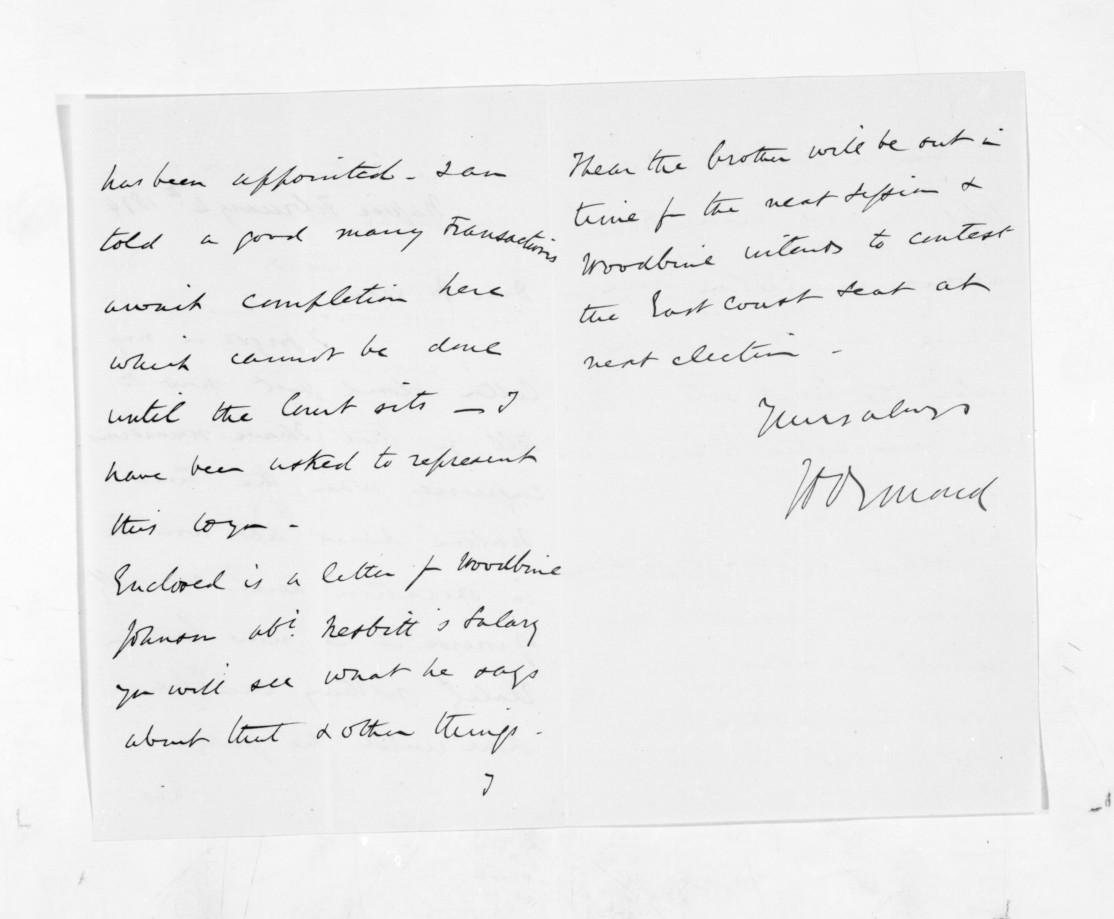 has been appointed - I am
told a good many transactions
await completion here
which cannot be done
until the Court sits - I
have been asked to represent
this
Enclosed is a letter fr Woodbine
Johnson abt. Nesbitt's Salary
you will see what he says
about that & other things -
I
I hear the brother will be out in
time for the next Session &
Woodbine intends to contest
the East Coast seat at
next election -
Yours always
Ormond